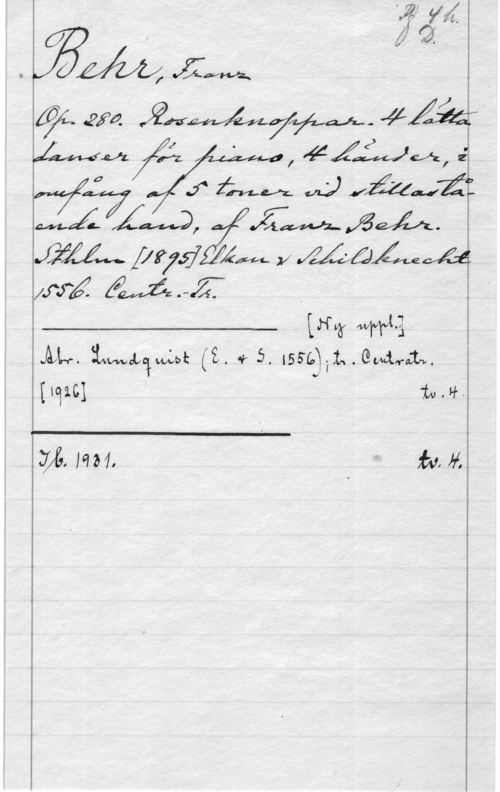 Pf 4 h.
D.
Behr, Franz
Op. 280. Rosenknoppar. 4 lätta
danser för piano, 4 händer, i
omfång af 5 toner vid stillastå-
ende hand, af Franz Behr.
Sthlm [1895] Elkan & Schildknecht
1556. Centr.-Tr.
[Ny uppl.]
Abr. Lundquist (E. & S. 1556); tr. Centraltr.
[1926] tv. 4.
Ib. 1931. tv. 4.